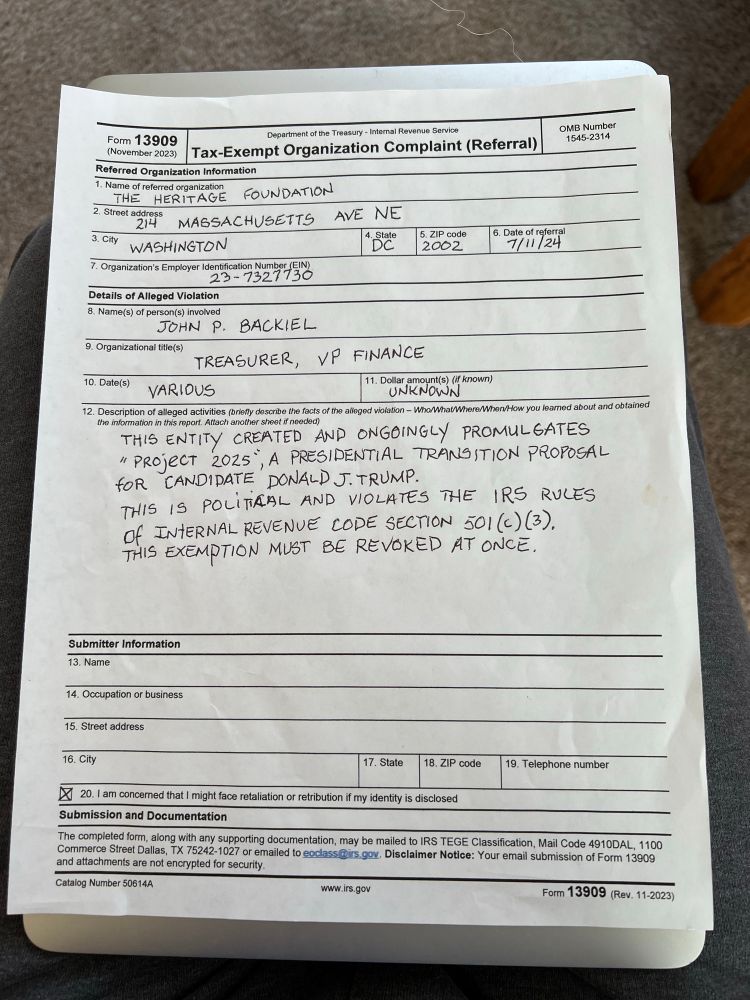 Form 13909
(November 2023)
Department of the Treasury - Internal Revenue Service
Tax-Exempt Organization Complaint (Referral)
OMB Number
1545-2314
Referred Organization Information
1. Name of referred organization
THE HERITAGE FOUNDATION
2. Street address
214 MASSACHUSETTS AVE NE
3. City
WASHINGTON
4. State
DC
5. ZIP code
2002
6. Date of referral
7/11/24
7. Organization's Employer Identification Number (EIN)
23-7327730
Details of Alleged Violation
8. Name(s) of person(s) involved
JOHN P. BACKIEL
9. Organizational title(s)
TREASURER, VP FINANCE
10. Date(s)
VARIOUS
11. Dollar amount(s) (if known)
UNKNOWN
12. Description of alleged activities (briefly describe the facts of the alleged violation – Who/What/Where/When/How you learned about and obtained
the information in this report. Attach another sheet if needed)
THIS ENTITY CREATED AND ONGOINGLY PROMULGATES
"PROJECT 2025", A PRESIDENTIAL TRANSITION PROPOSAL
FOR CANDIDATE DONALD J. TRUMP.
THIS IS POLITICAL AND VIOLATES THE IRS RULES
OF INTERNAL REVENUE CODE SECTION 501(c)(3).
THIS EXEMPTION MUST BE REVOKED AT ONCE.
Submitter Information
13. Name
14. Occupation or business
15. Street address
16. City
17. State
18. ZIP code
19. Telephone number
20. I am concerned that I might face retaliation or retribution if my identity is disclosed
Submission and Documentation
The completed form, along with any supporting documentation, may be mailed to IRS TEGE Classification, Mail Code 4910DAL, 1100
Commerce Street Dallas, TX 75242-1027 or emailed to eoclass@irs.gov. Disclaimer Notice: Your email submission of Form 13909
and attachments are not encrypted for security.
Catalog Number 50614A
www.irs.gov
Form 13909 (Rev. 11-2023)